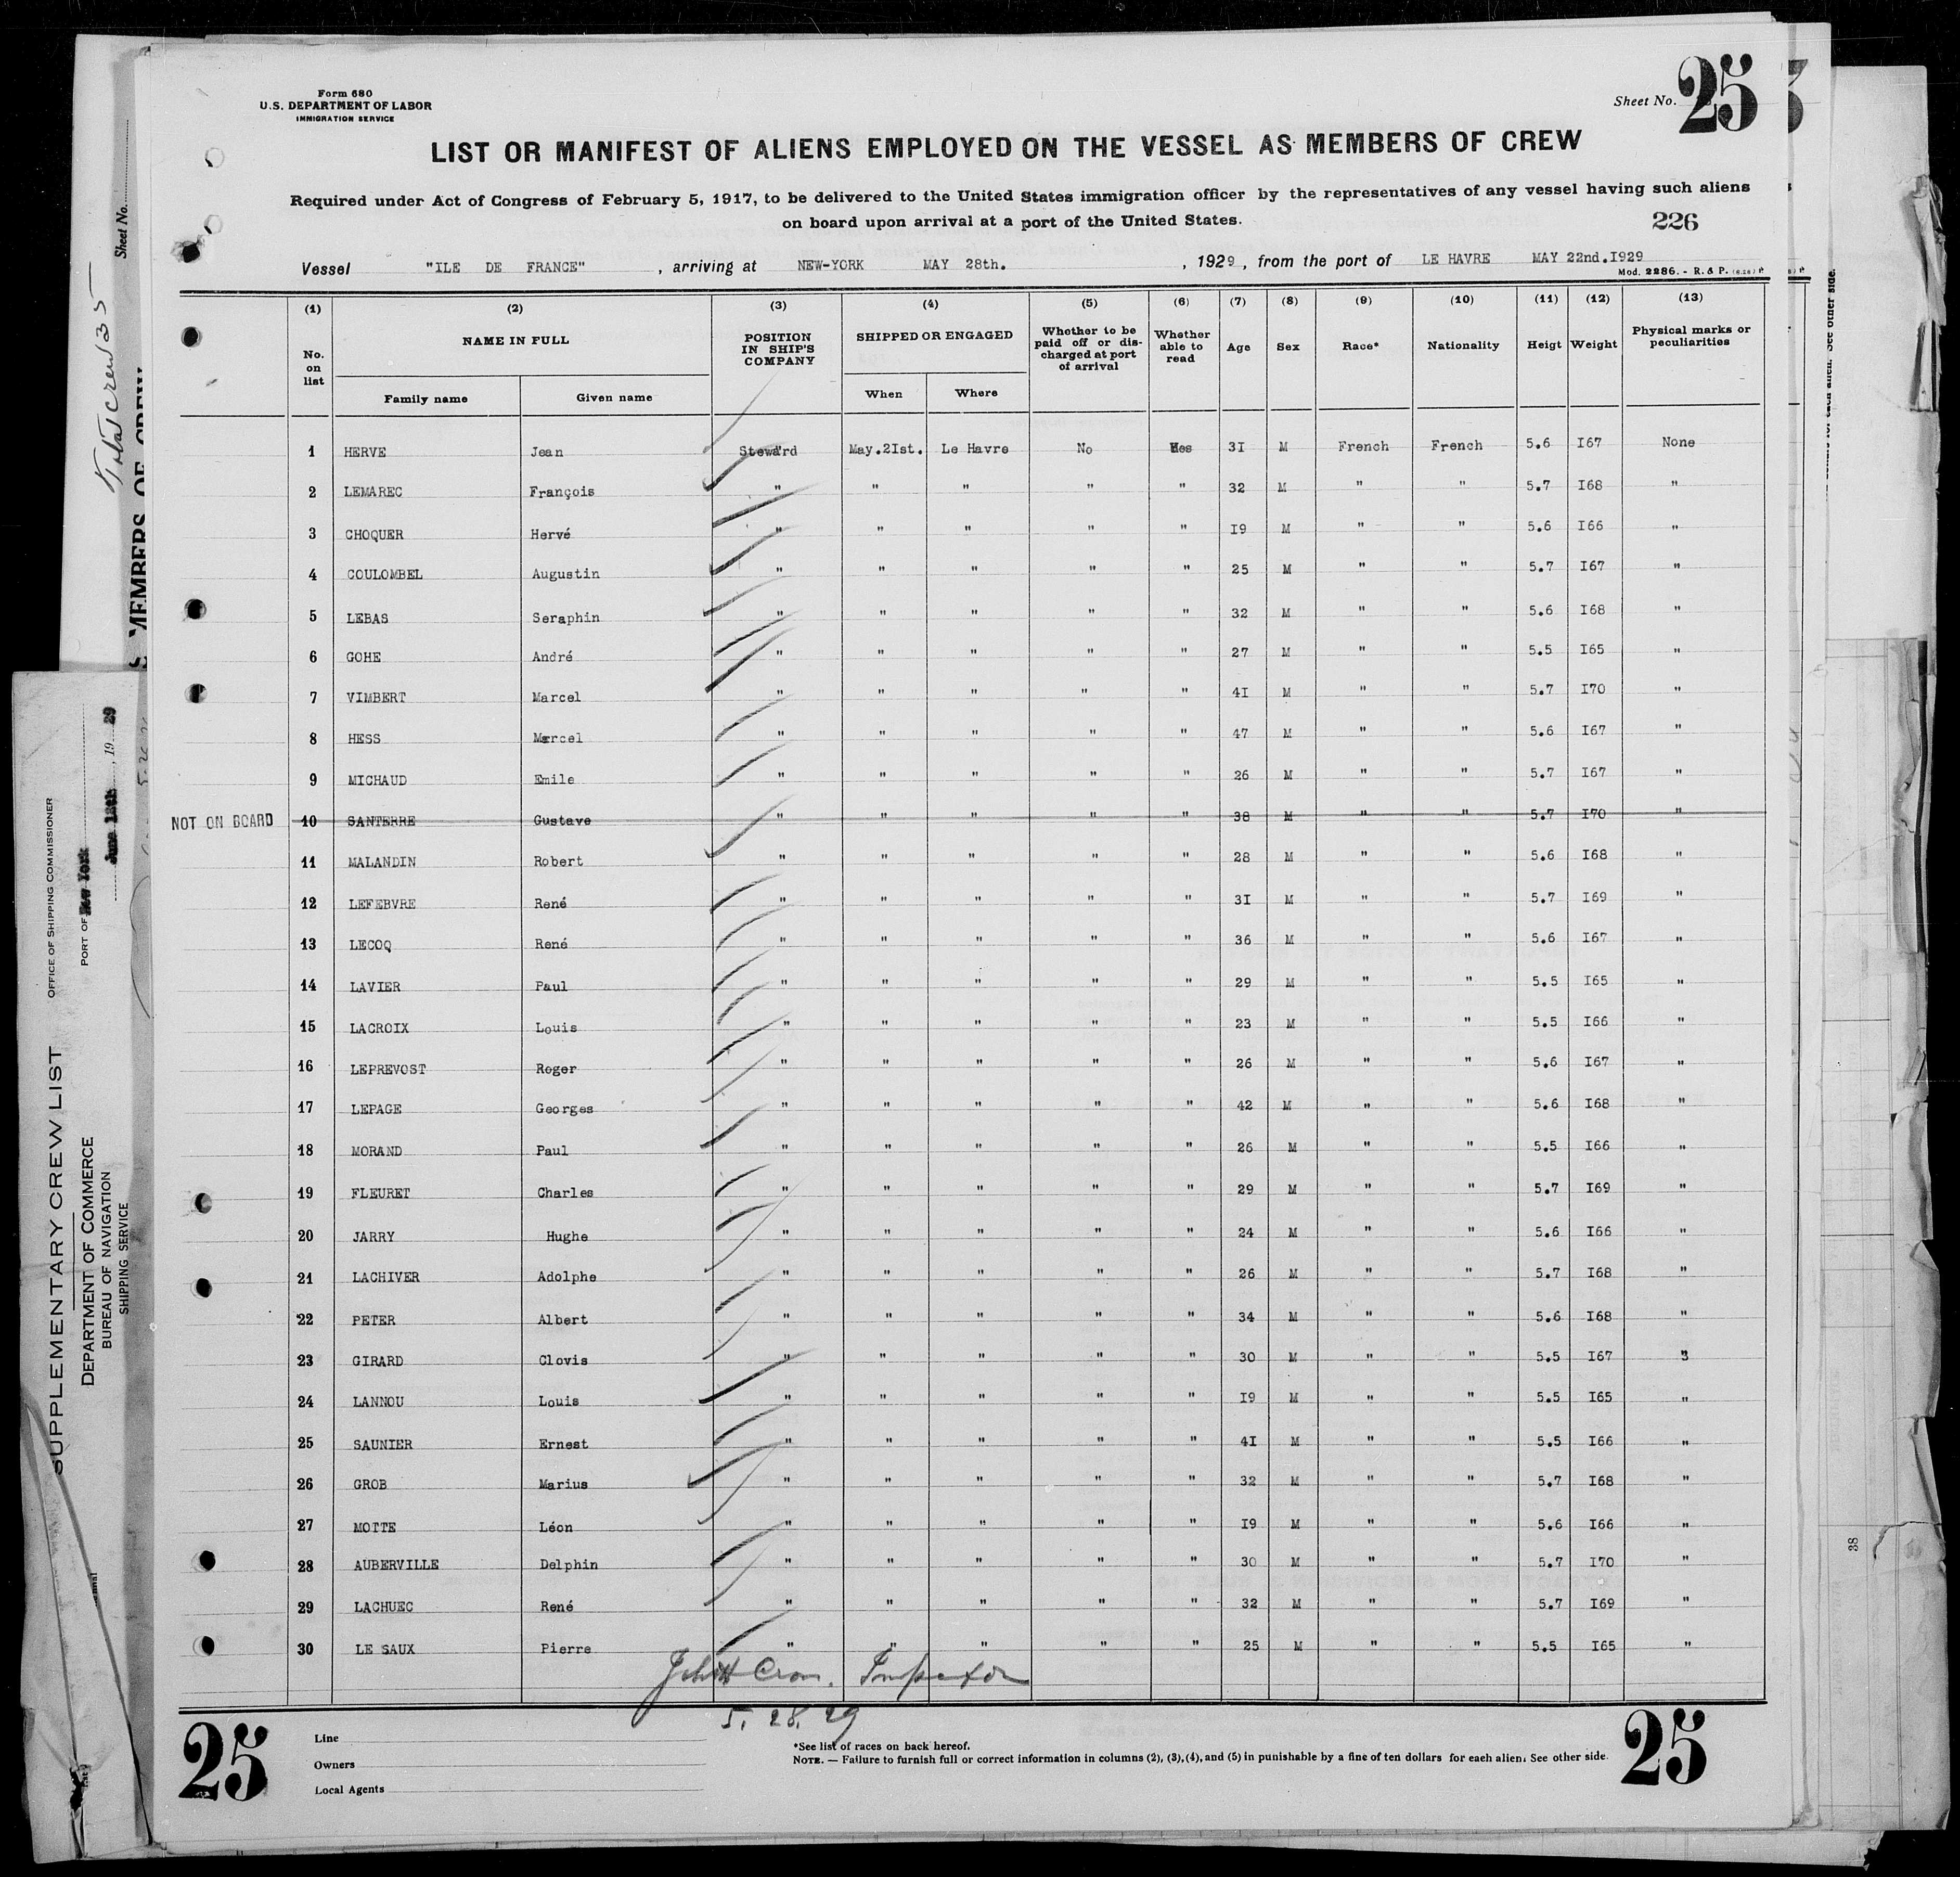 Form 680
U.S. DEPARTMENT OF LABOR
IMMIGRATION SERVICE
Sheet No. 25
LIST OR MANIFEST OF ALIENS EMPLOYED ON THE VESSEL AS MEMBERS OF CREW
Required under Act of Congress of February 5, 1917, to be delivered to the United States immigration officer by the representatives of any vessel having such aliens
on board upon arrival at a port of the United States.
226
Vessel "ILE DE FRANCE" , arriving at NEW-YORK MAY 28th. , 1929 , from the port of LE HAVRE MAY 22nd.I929
Mod. 2286. - R. & P.
(1) (2) (3) (4) (5) (6) (7) (8) (9) (10) (11) (12) (13)
No. on list NAME IN FULL POSITION IN SHIP'S COMPANY SHIPPED OR ENGAGED Whether to be paid off or discharged at port of arrival Whether able to read Age Sex Race* Nationality Heigt Weight Physical marks or peculiarities
Family name Given name When Where
1 HERVE Jean Steward May.2Ist. Le Havre No Yes 3I M French French 5.6 I67 None
2 LEMAREC François " " " " " 32 M " " 5.7 I68 "
3 CHOQUER Hervé " " " " " I9 M " " 5.6 I66 "
4 COULOMBEL Augustin " " " " " 25 M " " 5.7 I67 "
5 LEBAS Seraphin " " " " " 32 M " " 5.6 I68 "
6 GOHE André " " " " " 27 M " " 5.5 I65 "
7 VIMBERT Marcel " " " " " 4I M " " 5.7 I70 "
8 HESS Marcel " " " " " 47 M " " 5.6 I67 "
9 MICHAUD Emile " " " " " 26 M " " 5.7 I67 "
NOT ON BOARD 10 SANTERRE Gustave " " " " " 38 M " " 5.7 I70 "
11 MALANDIN Robert " " " " " 28 M " " 5.6 I68 "
12 LEFEBVRE René " " " " " 3I M " " 5.7 I69 "
13 LECOQ René " " " " " 36 M " " 5.6 I67 "
14 LAVIER Paul " " " " " 29 M " " 5.5 I65 "
15 LACROIX Louis " " " " " 23 M " " 5.5 I66 "
16 LEPREVOST Roger " " " " " 26 M " " 5.6 I67 "
17 LEPAGE Georges " " " " " 42 M " " 5.6 I68 "
18 MORAND Paul " " " " " 26 M " " 5.5 I66 "
19 FLEURET Charles " " " " " 29 M " " 5.7 I69 "
20 JARRY Hughe " " " " " 24 M " " 5.6 I66 "
21 LACHIVER Adolphe " " " " " 26 M " " 5.7 I68 "
22 PETER Albert " " " " " 34 M " " 5.6 I68 "
23 GIRARD Clovis " " " " " 30 M " " 5.5 I67 "
24 LANNOU Louis " " " " " I9 M " " 5.5 I65 "
25 SAUNIER Ernest " " " " " 4I M " " 5.5 I66 "
26 GROB Marius " " " " " 32 M " " 5.7 I68 "
27 MOTTE Léon " " " " " I9 M " " 5.6 I66 "
28 AUBERVILLE Delphin " " " " " 30 M " " 5.7 I70 "
29 LACHUEC René " " " " " 32 M " " 5.7 I69 "
30 LE SAUX Pierre " " " " " 25 M " " 5.5 I65 "
Inspector
5. 28. 29
25
Line
Owners
Local Agents
*See list of races on back hereof.
NOTE. — Failure to furnish full or correct information in columns (2), (3), (4), and (5) in punishable by a fine of ten dollars for each alien. See other side.
25
Sheet No.
Total crew 35
MEMBERS OF CREW
SUPPLEMENTARY CREW LIST
DEPARTMENT OF COMMERCE
BUREAU OF NAVIGATION
SHIPPING SERVICE
OFFICE OF SHIPPING COMMISSIONER
PORT OF New York
June 12th , 19 29
See other side.
38